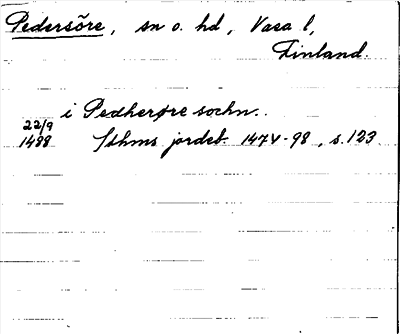 Pedersöre, sn o. hd, Vasa l,
Finland.
i Pedherøre sochn.
22/9
1488 Sthms jordeb. 1474-98, s. 123.